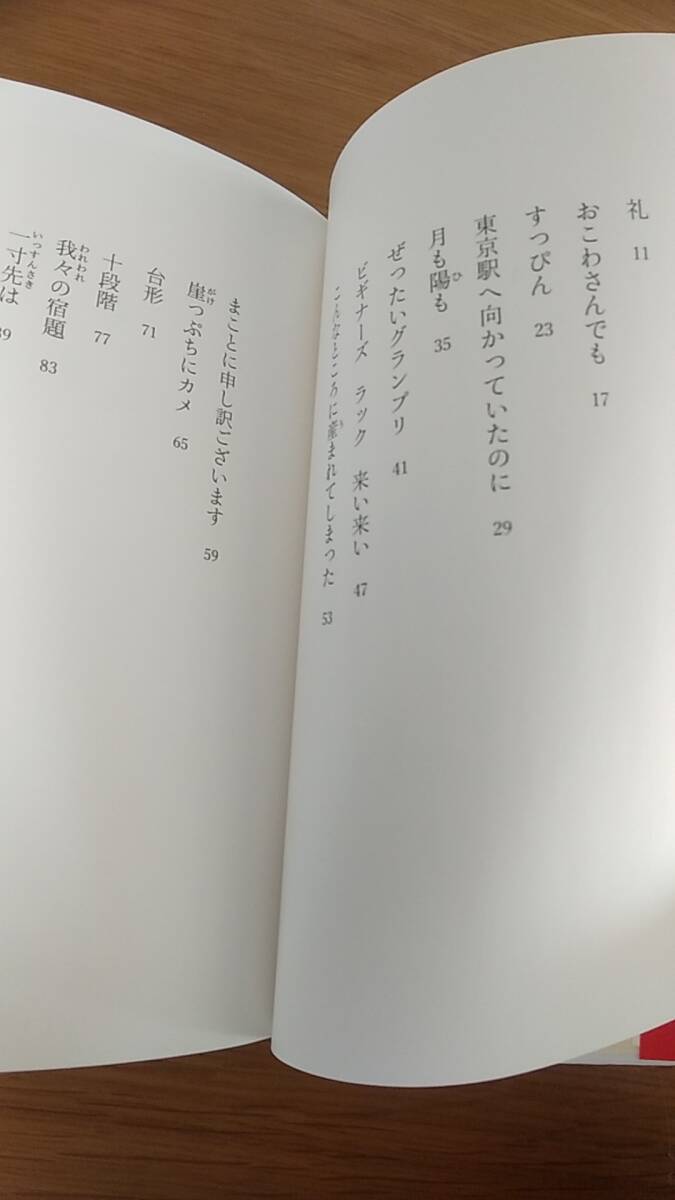 礼 11
おこわさんでも 17
すっぴん 23
東京駅へ向かっていたのに 29
月も陽も 35
ひ
ぜったいグランプリ 41
ビギナーズ ラック 来い来い 47
こんなところに産まれてしまった 53
う
まことに申し訳ございます 59
崖っぷちにカメ 65
がけ
台形 71
十段階 77
我々の宿題 83
われわれ
一寸先は
いっすんさき